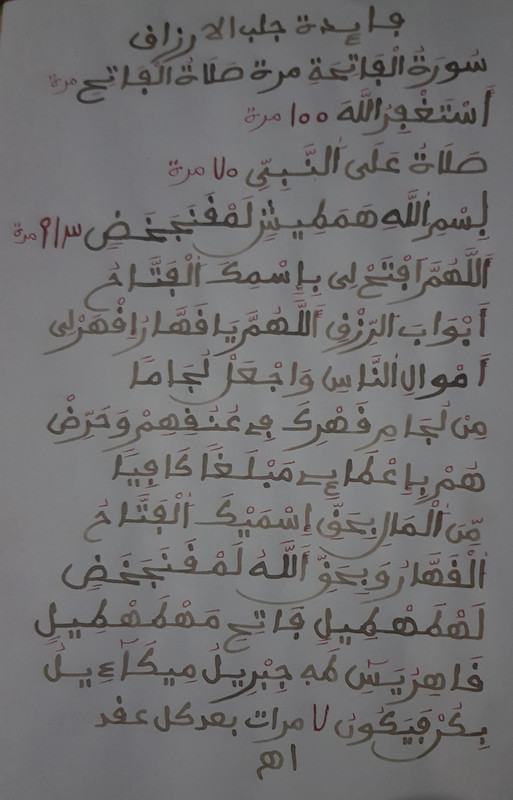 فايدة جلب الارزاق
سُورَةُ الْفَاتِحَةِ مرة صَلَاةُ الْفَاتِحِ مرة
أَسْتَغْفِرُ اللَّهَ ١٠٠ مرة
صَلَاةُ عَلَى النَّبِيِّ ٧٠ مرة
بِسْمِ اللَّهِ هَمَطِيشٍ لَمَقْفَنْجَخَضٍ ٩١٣ مرة
اَللَّهُمَّ اَفْتَحْ لِى بِإِسْمِكَ الْفَتَّاحُ
أَبْوَابَ الرِّزْقِ اَللَّهُمَّ يَا قَهَّارُ اِقْهَرْ لِى
أَمْوالِ النَّاسِ وَاجْعَلْ لُجَامًا
مِنْ لُجَامِ قَهْرِكَ فِى عُنُقِهِمْ وَحَرِّضْ
هُمْ بِإِعْطَاءِى مَبْلَغًا كَافِيًا
مِّنَ الْمَالِ بِحَقِّ إِسْمَيْكَ الْفَتَّاحُ
الْقَهَّارُ وَبِحَقِّ اَللَّهُ لَمَقْفَنْجَخَضٍ
لَهْطَهْطِيلٍ فَاتِحٍ مَهْطَهْطِيلٍ
قَاهِرٍ يَسٓ طَهَ جِبْرِيلُ مِيكَآءِيلُ
بِكُنْ فَيَكُونُ ٧ مرات بعد كل عقد
اهـ